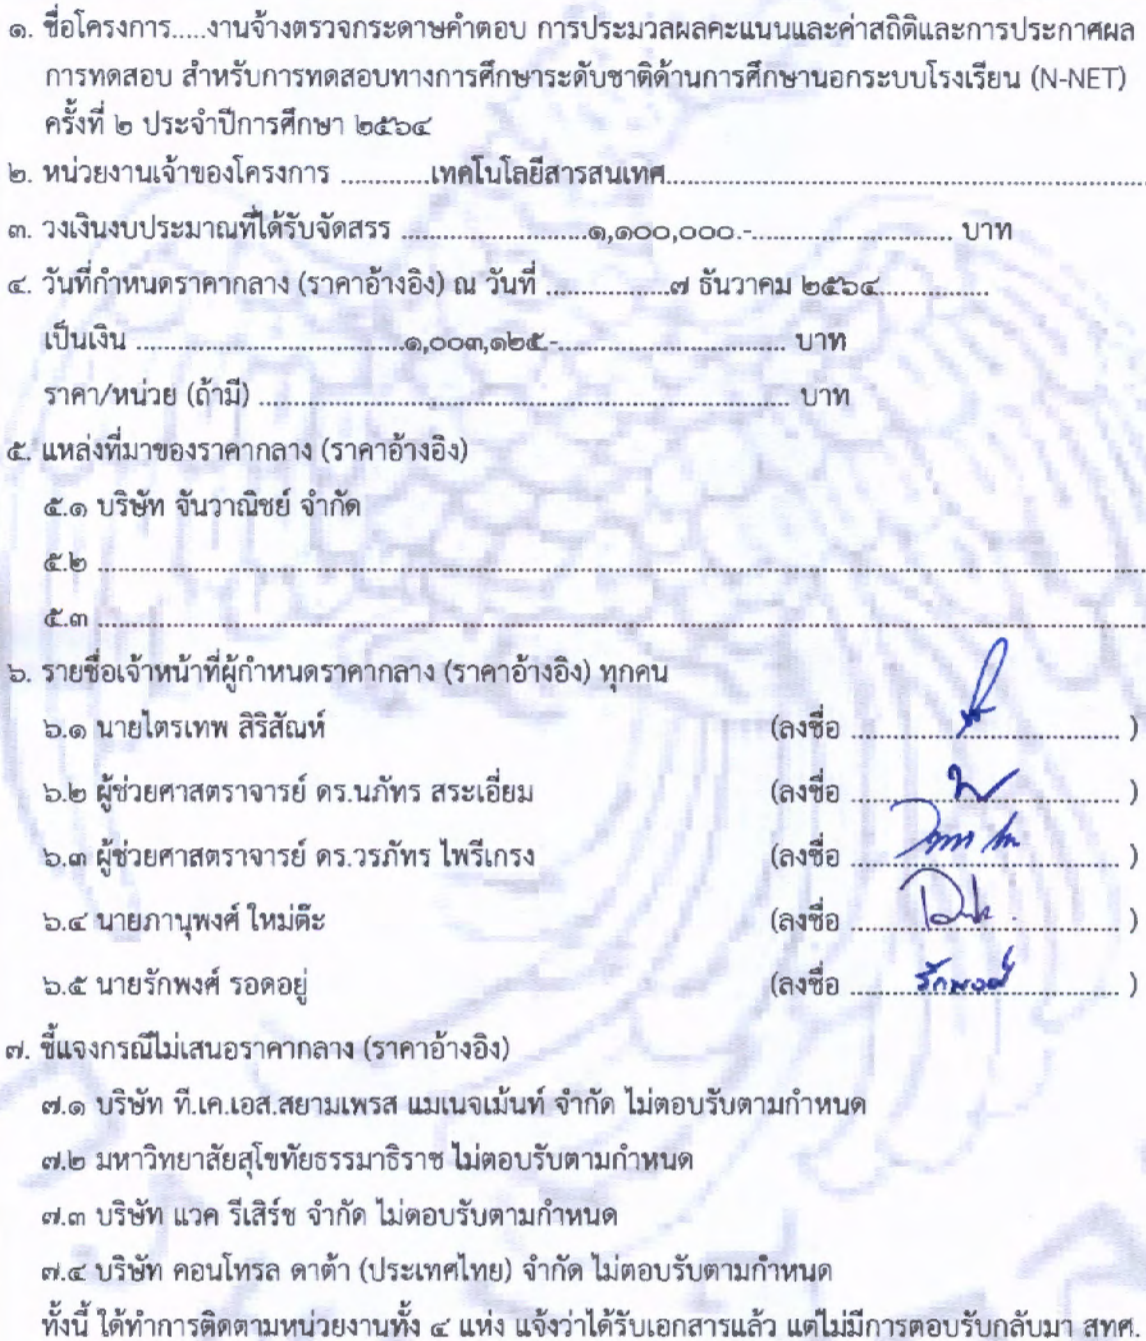 ๑. ชื่อโครงการ.....งานจ้างตรวจกระดาษคำตอบ การประมวลผลคะแนนและค่าสถิติและการประกาศผล
การทดสอบ สำหรับการทดสอบทางการศึกษาระดับชาติด้านการศึกษานอกระบบโรงเรียน (N-NET)
ครั้งที่ ๒ ประจำปีการศึกษา ๒๕๖๔
๒. หน่วยงานเจ้าของโครงการ .............เทคโนโลยีสารสนเทศ.......................................................................
๓. วงเงินงบประมาณที่ได้รับจัดสรร ............................๑,๑๐๐,๐๐๐.-............................. บาท
๔. วันที่กำหนดราคากลาง (ราคาอ้างอิง) ณ วันที่ ..................๗ ธันวาคม ๒๕๖๔................
เป็นเงิน .......................................๑,๐๐๓,๑๒๕.-................................. บาท
ราคา/หน่วย (ถ้ามี) .............................................................................. บาท
๕. แหล่งที่มาของราคากลาง (ราคาอ้างอิง)
๕.๑ บริษัท จันวาณิชย์ จำกัด
๕.๒ ..........................................................................................................................
๕.๓ ..........................................................................................................................
๖. รายชื่อเจ้าหน้าที่ผู้กำหนดราคากลาง (ราคาอ้างอิง) ทุกคน
๖.๑ นายไตรเทพ สิริสัณห์ (ลงชื่อ ....................................... )
๖.๒ ผู้ช่วยศาสตราจารย์ ดร.นภัทร สระเอี่ยม (ลงชื่อ ....................................... )
๖.๓ ผู้ช่วยศาสตราจารย์ ดร.วรภัทร ไพรีเกรง (ลงชื่อ ....................................... )
๖.๔ นายภานุพงศ์ ใหม่ต๊ะ (ลงชื่อ ....................................... )
๖.๕ นายรักพงศ์ รอดอยู่ (ลงชื่อ ..........รักพงศ์............... )
๗. ชี้แจงกรณีไม่เสนอราคากลาง (ราคาอ้างอิง)
๗.๑ บริษัท ที.เค.เอส.สยามเพรส แมเนจเม้นท์ จำกัด ไม่ตอบรับตามกำหนด
๗.๒ มหาวิทยาลัยสุโขทัยธรรมาธิราช ไม่ตอบรับตามกำหนด
๗.๓ บริษัท แวค รีเสิร์ช จำกัด ไม่ตอบรับตามกำหนด
๗.๔ บริษัท คอนโทรล ดาต้า (ประเทศไทย) จำกัด ไม่ตอบรับตามกำหนด
ทั้งนี้ ได้ทำการติดตามหน่วยงานทั้ง ๔ แห่ง แจ้งว่าได้รับเอกสารแล้ว แต่ไม่มีการตอบรับกลับมา สทศ.